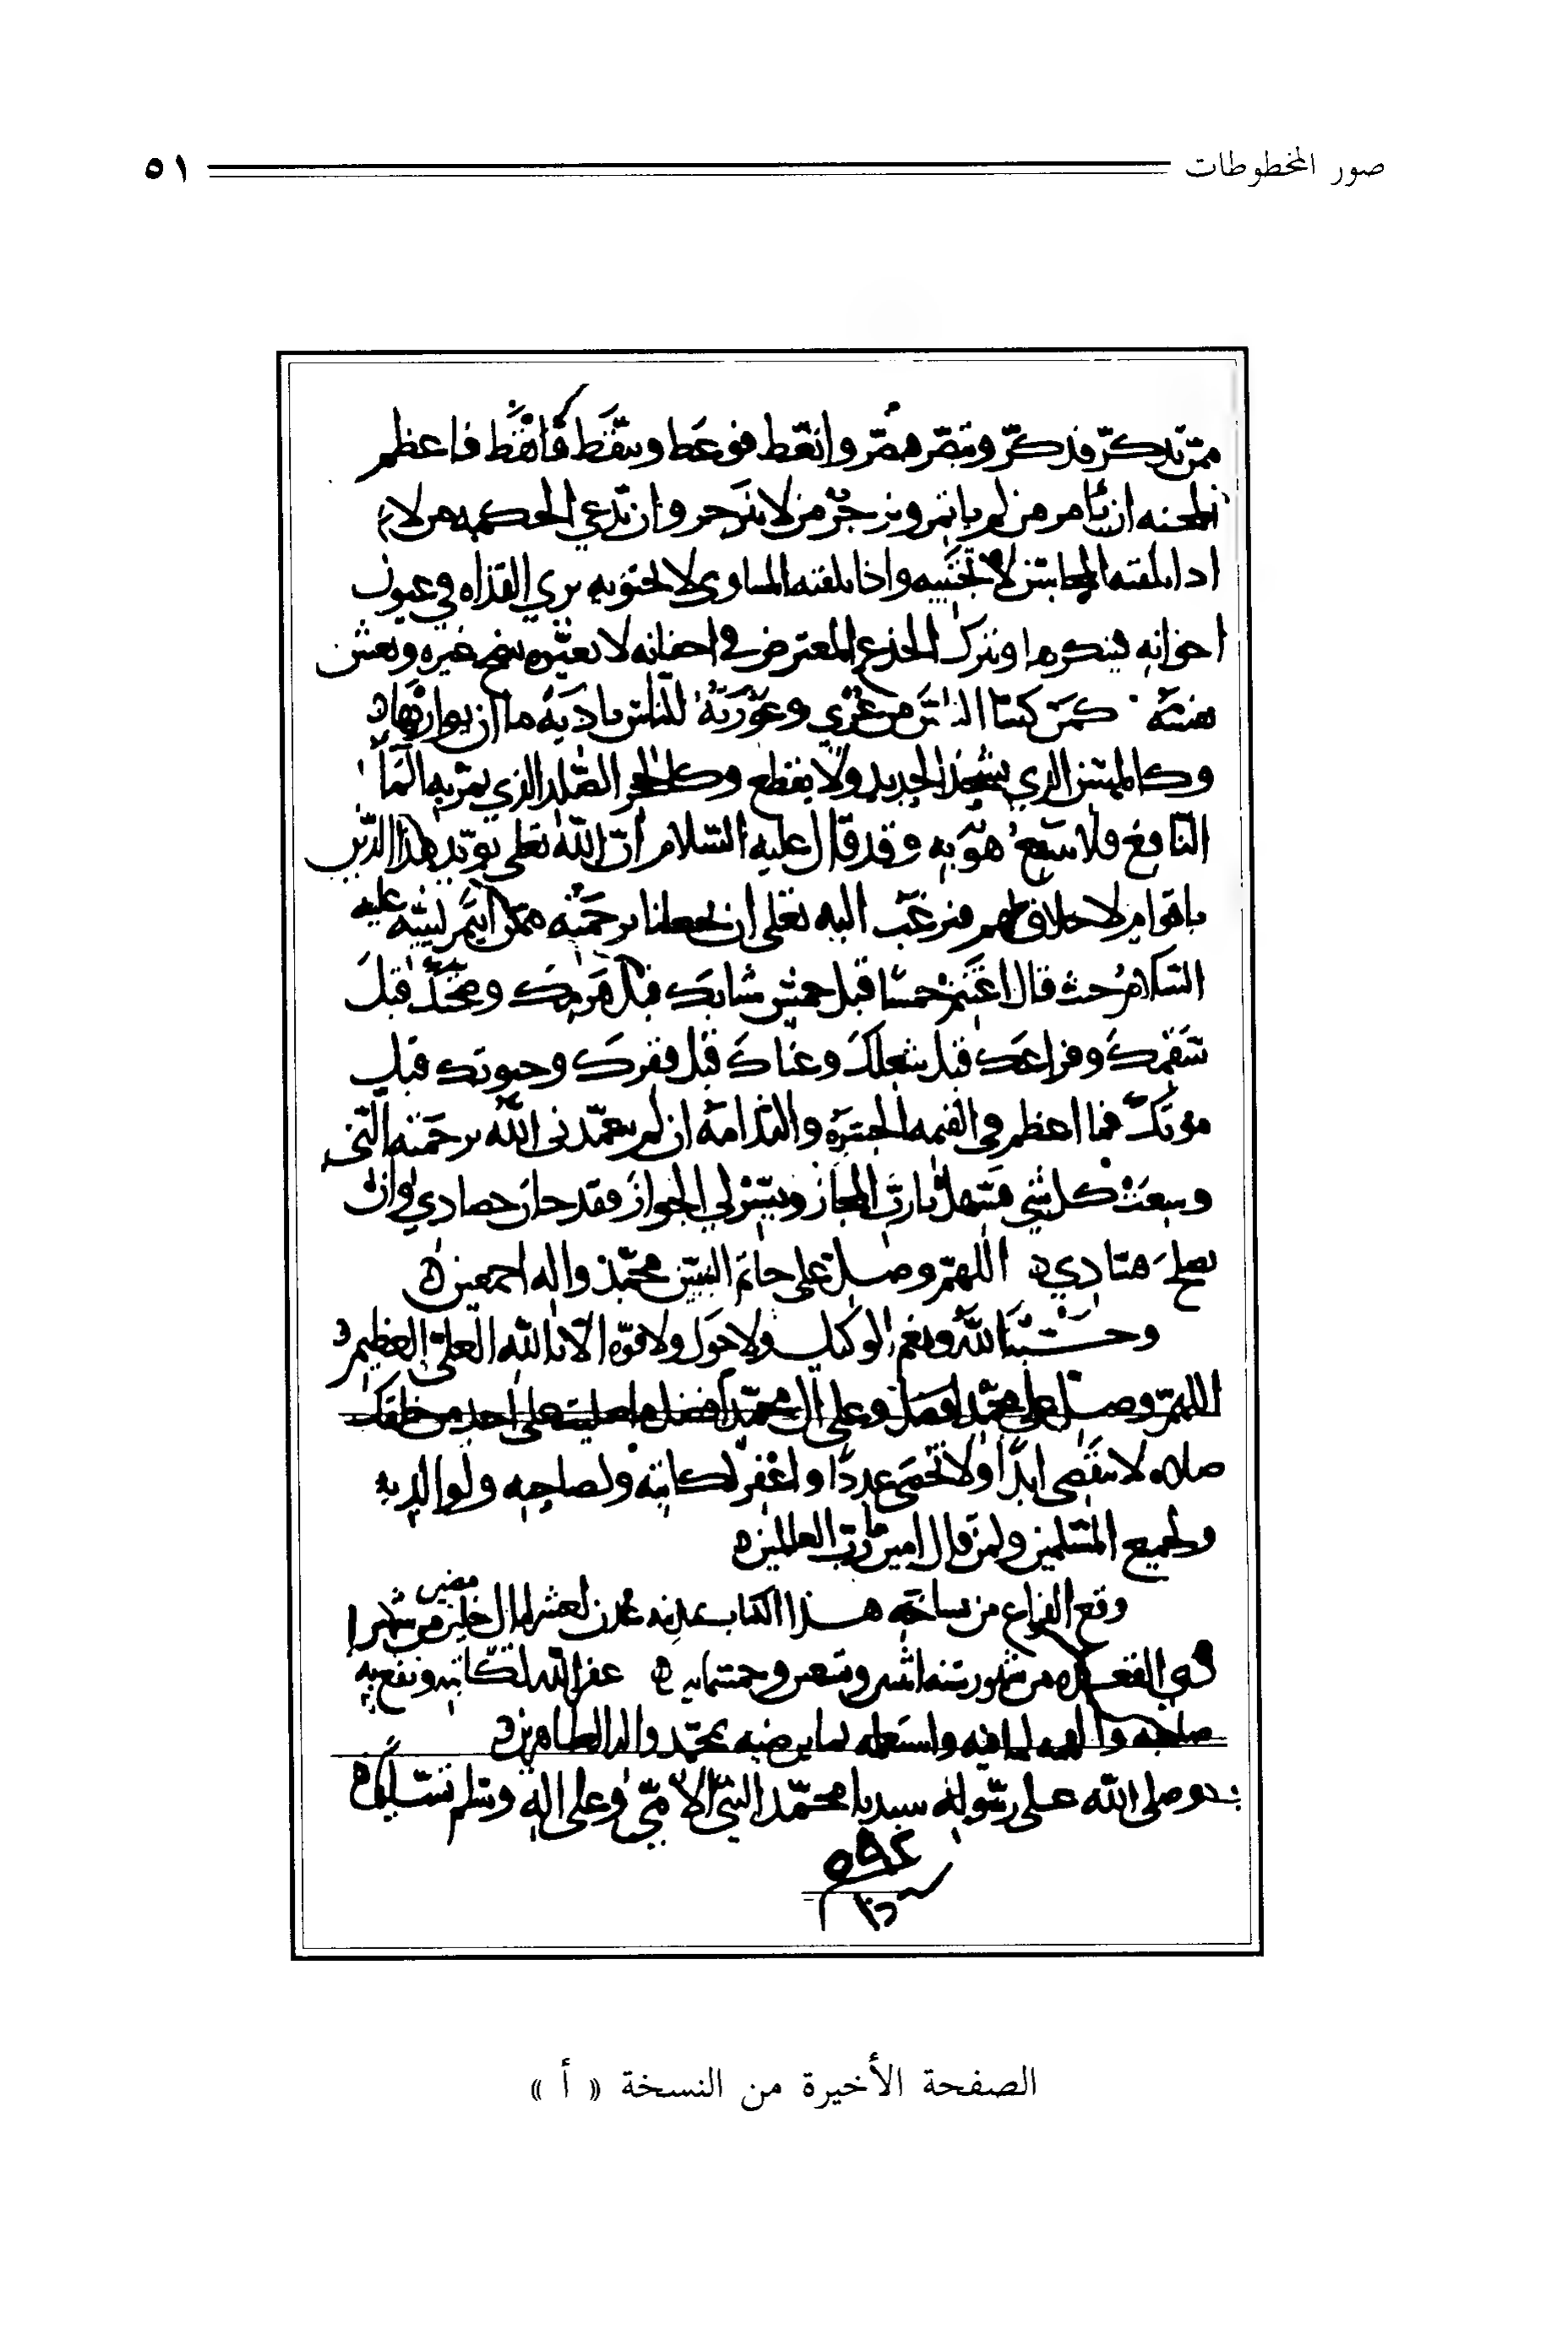 صور المخطوطات ٥١
ممن تذكر فذكر وتبصر فبصر واتعظ فوعظ وتيقظ فأيقظ فاعظم
المحنه ان يأمر من لم ياتمر ويزجر من لا ينزجر وان تدعي الحكمه من لا
اذا بلغته المحاسن لا تجتنيه واذا بلغته المساوي لا تحتويه يري القذاه في عيون
اخوانه فينكرها ويترك الجذع المعترض في اجفانه لا يغيره ينصح غيره ويغش
نفسه كمن كسا الناس من عري وعورته للناس باديه ما ان يواريها
وكالمسن الذي يشحذ الحديد ولا يقطع وكالحجر الصلد الذي يمر به الما
النافع فلا ينتفع هو به وقد قال عليه السلام ان الله تعلى يويد هذا الدين
باقوام لا خلاق لهم فنرغب اليه تعلى ان يجعلنا برحمته ممن ايتمر لنبيه عليه
السلام حيث قال اغتنم خمسا قبل خمس شبابك قبل هرمك وصحتك قبل
سقمك وفراغك قبل شغلك وغناك قبل فقرك وحيوتك قبل
موتك فما اعظم في القيمه الحسره والندامة ان لم يتغمدني الله برحمته التي
وسعت كل شي فسهل يا رب المجاز ويسر لي الجواز فقد حان حصادي وان
يصلح فسادي اللهم وصل على خاتم النبيين محمد واله اجمعين
وحسبنا الله ونعم الوكيل ولا حول ولا قوه الا بالله العلي العظيم
اللهم وصل على محمد وعلى آل محمد افضل ما صليت على احد من خلقك
صلاه لا تنقضي ابدا ولا تحصى عددا واغفر لكاتبه ولصاحبه ولوالديه
ولجميع المسلمين ولمن قال امين يا رب العالمين
وقع الفراغ من نساخة هذا الكتاب بمدينه عدن لعشر ليال مضين من شهر
ذي القعده من شهور سنه اثنين وتسعين وخمسمايه غفر الله لكاتبه ونفع به
صاحبه واستعمله لما يرضيه بمحمد واله الطاهرين
وصلى الله على رسوله سيدنا محمد النبي الامي وعلى اله وسلم تسليما
الصفحة الأخيرة من النسخة « أ »